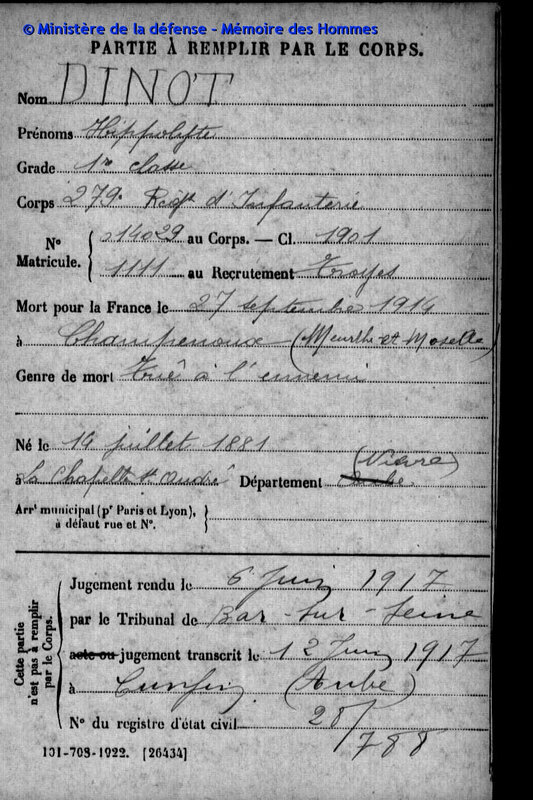 © Ministère de la défense - Mémoire des Hommes
PARTIE À REMPLIR PAR LE CORPS.
Nom DINOT
Prénoms Hippolyte
Grade 1re classe
Corps 279e Regt d'Infanterie
N° Matricule. { 014029 au Corps. — Cl. 1901
1111 au Recrutement Troyes
Mort pour la France le 27 septembre 1914
à Champenoux (Meurthe et Moselle)
Genre de mort Tué à l'ennemi
Né le 14 juillet 1881
à La Chapelle St André Département (Nièvre) Aube
Arrt municipal (pr Paris et Lyon), }
à défaut rue et N°.
Cette partie n'est pas à remplir par le Corps.
Jugement rendu le 6 Juin 1917
par le Tribunal de Bar-sur-Seine
acte ou jugement transcrit le 12 Juin 1917
à Cunfin (Aube)
N° du registre d'état civil 28/
788
101-708-1922. [26434]